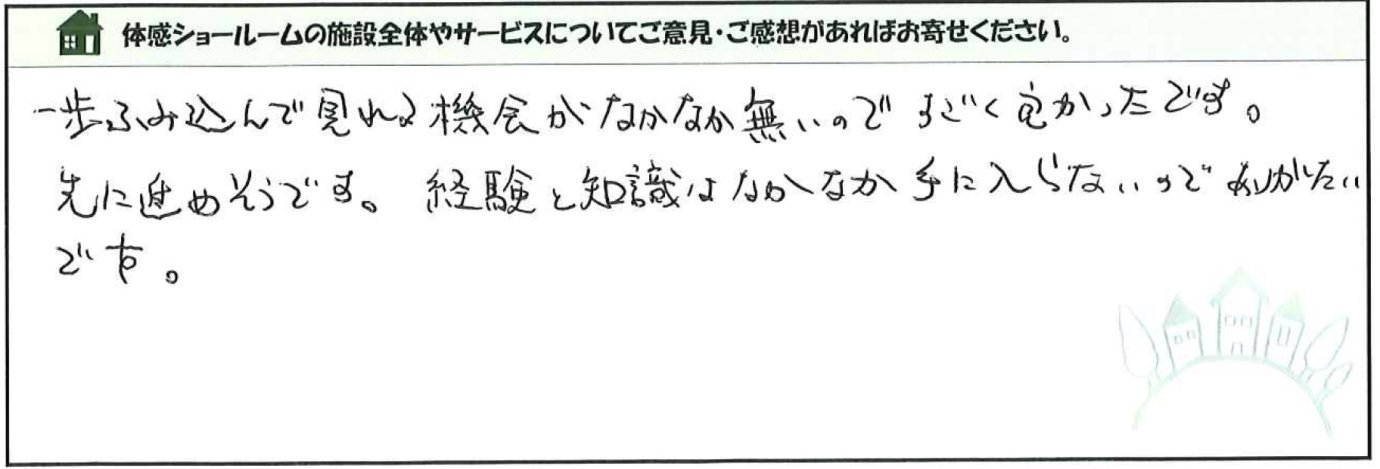 体感ショールームの施設全体やサービスについてご意見・ご感想があればお寄せください。
一歩ふみ込んで見れる機会がなかなか無いのですごく良かったです。
先に進めそうです。経験と知識はなかなか手に入らないのでありがたい
です。